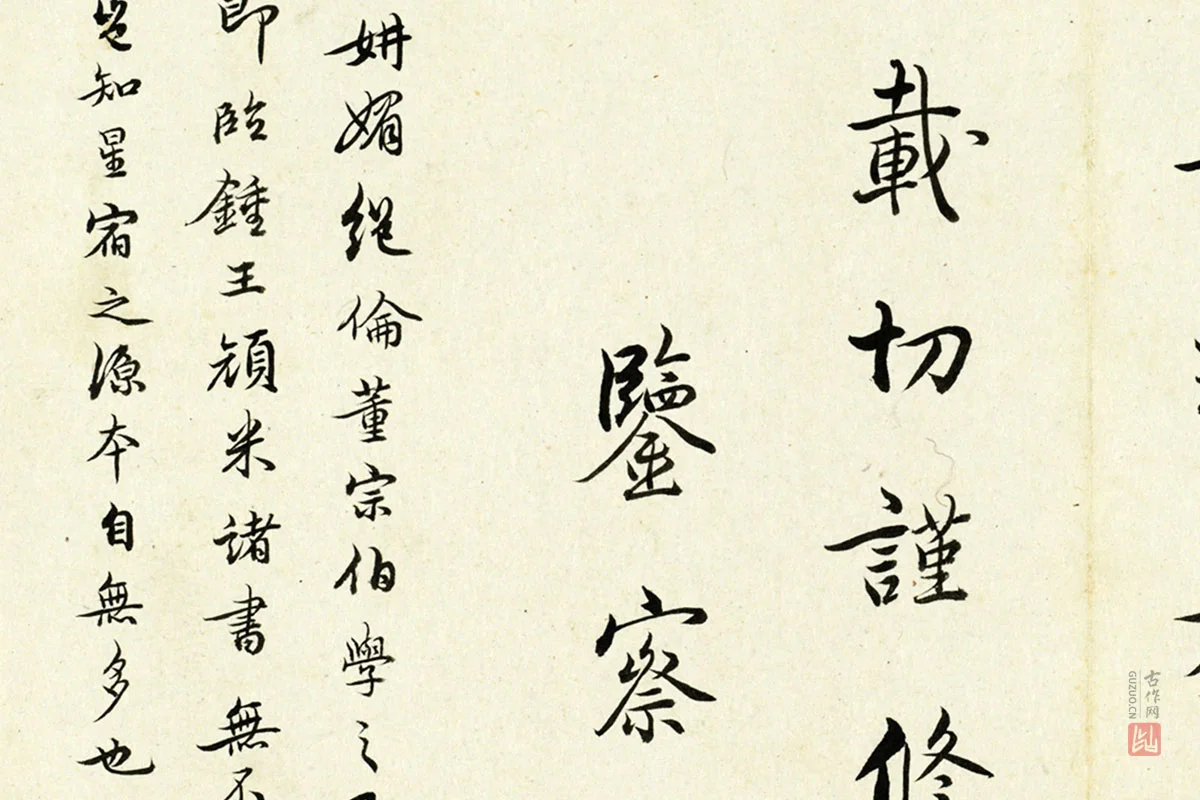 載切謹修
鑒察
妍媚絕倫董宗伯學之
即臨鍾王頑米諸書無不
豈知星宿之源本自無多也
古作网
GUZUO.CN